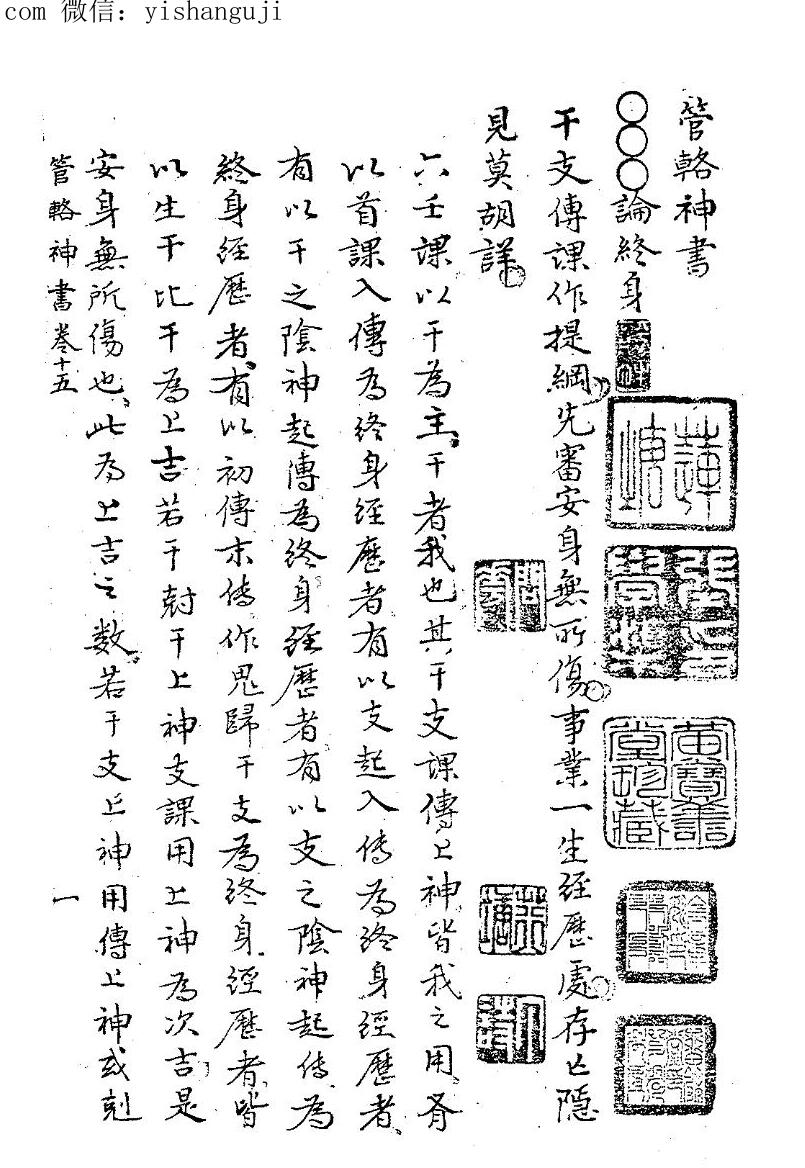 com 微信：yishanguji
管輅神書
○○○論終身
干支傳課作提綱先審安身無所傷事業一生経歷處存亡隱
見莫胡詳
六壬課以干為主干者我也其干支課傳上神皆我之用有
以首課入傳為终身経歷者有以支起入傳為终身經歷者
有以干之陰神起傳為终身经歷者有以支之陰神起傳為
終身經歷者有以初傳末傳作鬼歸干支為終身經歷者皆
以生干比干為上吉若干尅干上神支課用上神為次吉是
安身無所傷也此為上吉之數若干支上神用傳上神或剋
管輅神書卷十五
一
苗寶善
堂珍藏